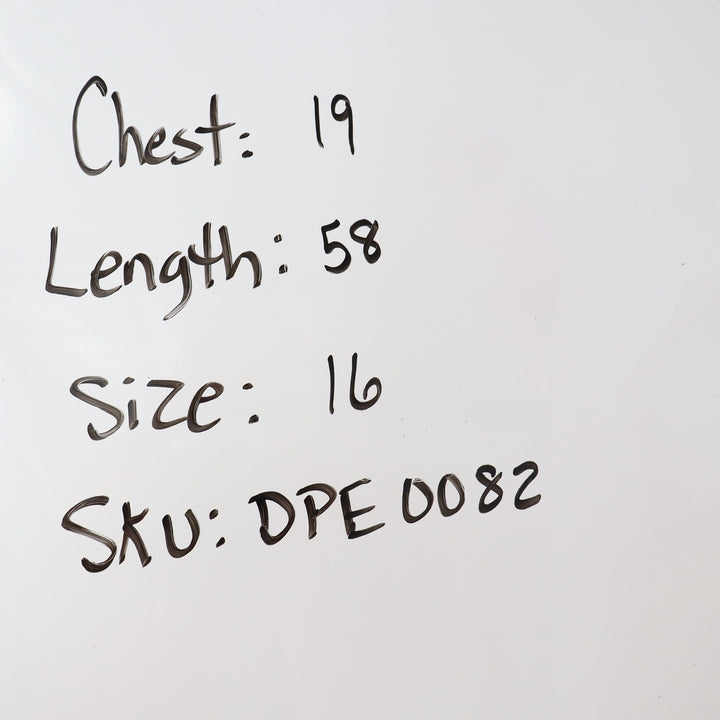 Chest: 19
Length: 58
Size: 16
SKU: DPE 0082